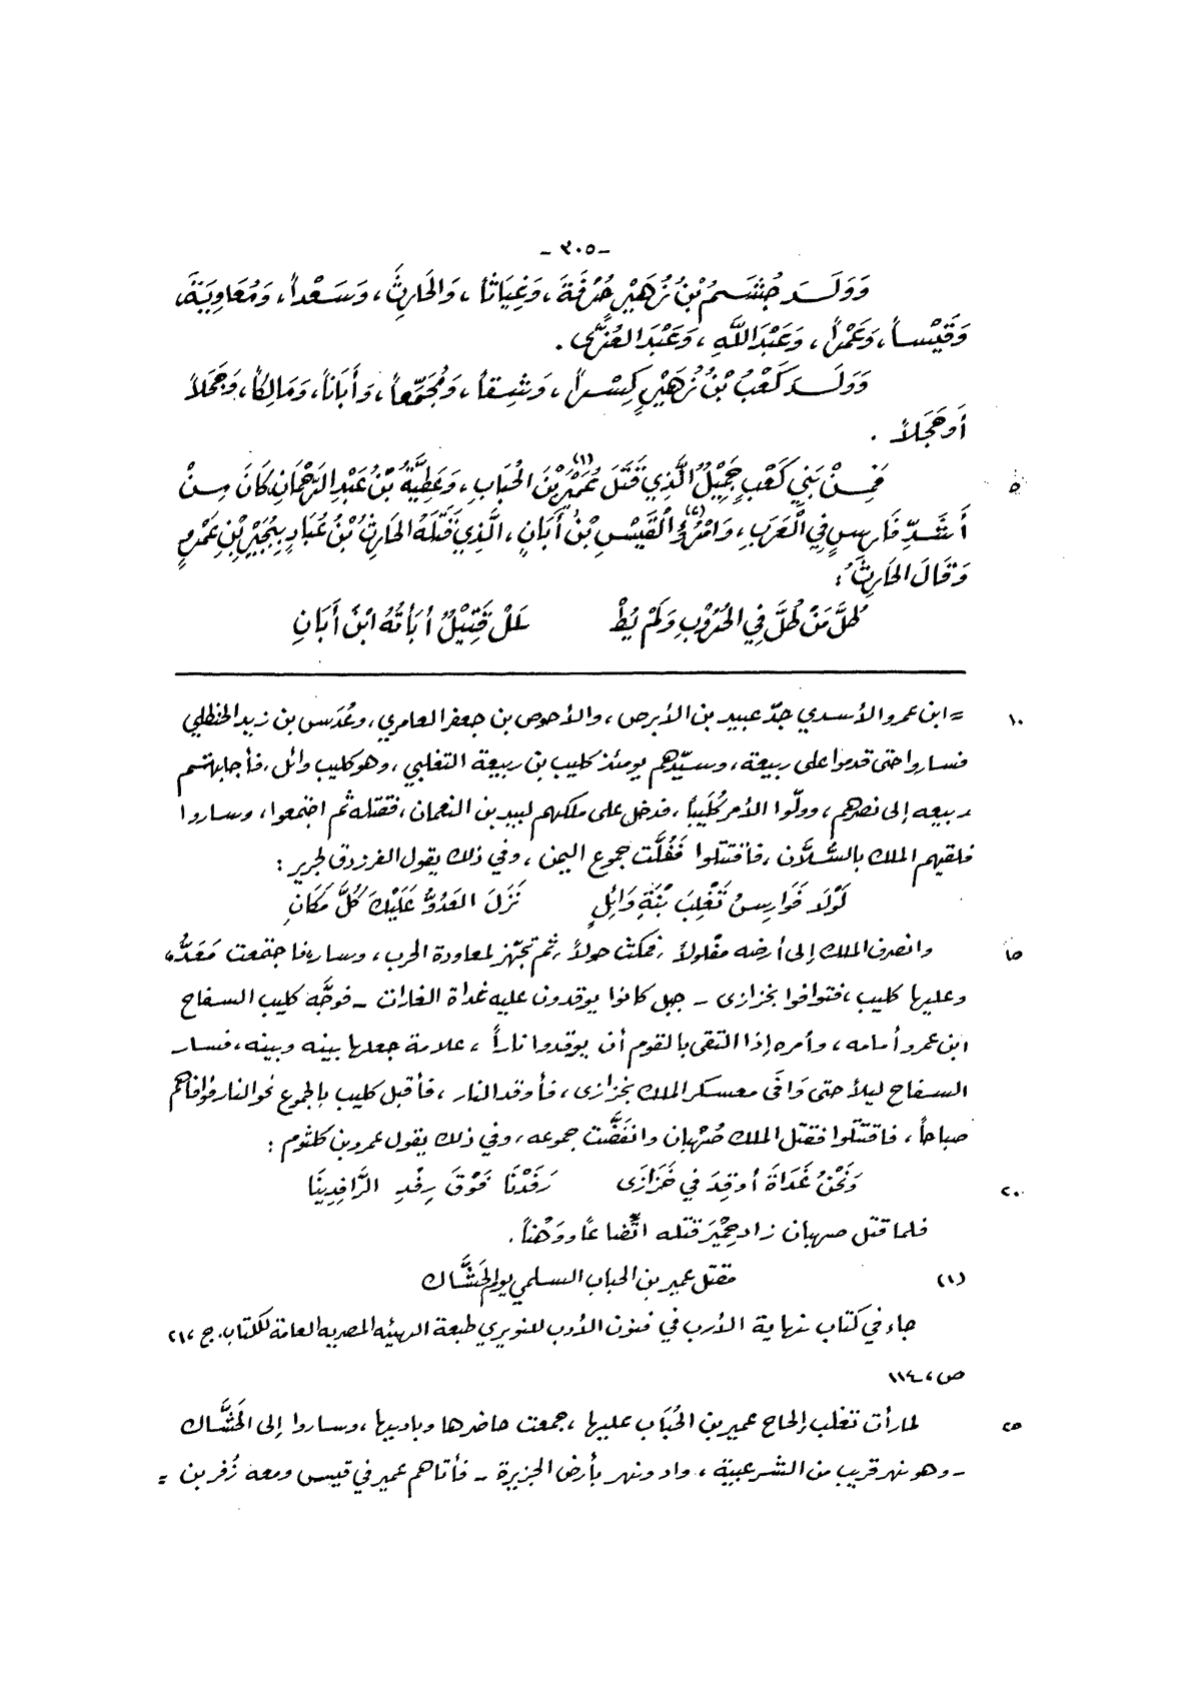 -٣٠٥-
وَوَلَـدَ جُشَـمُ بْنُ زُهَيْرٍ حُرْفَةَ، وَغِيَاثاً، وَالحَارِثَ، وَسَعْداً، وَمُعَاوِيَةَ،
وَقَيْساً، وَعَمْراً، وَعَبْدَ اللَّهِ، وَعَبْدَ العُزَّى.
وَوَلَـدَ كَعْبُ بْنُ زُهَيْرٍ كِسْراً، وَشِقاً، وَمُجَمِّعاً، وَأَبَاناً، وَمَالِكاً، وَجَحَلاً
أَوحَجَلاً.
٥ فَمِـنْ بَنِي كَعْبٍ جَمِيْلٌ الَّذِي قَتَلَ عُمَيْرَ(١) بْنَ الحُبَابِ، وَعَطِيَّةُ بْنُ عَبْدِ الرَّحْمَانِ كَانَ مِـنْ
أَشَـدِّ فَارِسٍ فِي الْعَرَبِ، وَامْرُؤُ(٢) الْقَيْسِ بْنُ أَبَانٍ، الَّذِي قَتَلَهُ الحَارِثُ بْنُ عُبَادٍ بِبُجَيْرِ بْنِ عَمْرٍو
وَقَالَ الحَارِثُ:
طُلَّ مَنْ طُلَّ فِي الحُرُوْبِ وَلَمْ يُطْـ لَلْ قَتِيْلٌ أُبَأْتُهُ ابْنُ أَبَانِ
١٠ = ابن عمرو الأسدي جدّ عبيد بن الأبرص، والأحوص بن جعفر العامري، وعُدَس بن زيد الحنظلي
فساروا حتى قدموا على ربيعة، وسيّدهم يومئذ كليب بن ربيعة التغلبي، وهو كليب وائل، فأجابتهم
ربيعه إلى نصرهم، وولّوا الأمر كُلَيباً، فدخل على ملكهم لبيد بن النعمان، فقتله ثم اجتمعوا، وساروا
فلقيهم الملك بالسُّلاَّن، فاقتتلوا فَفُلَّت جموع اليمن، وفي ذلك يقول الفرزدق لجرير:
لَوْلَا فَوَارِسُ تَغْلِبَ ابْنَةِ وَائِلٍ نَزَلَ العَدُوُّ عَلَيْكَ كُلَّ مَكَانِ
١٥ وانصرف الملك إلى أرضه مفلولاً، فمكث حولاً، ثم تجهّز لمعاودة الحرب، وسار فاجتمعت مَعَدُّ،
وعليها كليب، فتوافوا بخزازى - جبل كانوا يوقدون عليه غداة الغارات - فوجَّه كليب السفاح
ابن عمرو أمامه، وأمره إذا التقى بالقوم أن يوقدوا ناراً، علامة جعلها بينه وبينه، فسار
السفاح ليلاً حتى وَافَى معسكر الملك بخزازى، فأوقد النار، فأقبل كليب بالجموع نحو النار فوافاهم
صباحاً، فاقتتلوا فقتل الملك صُهْبان وانفَضَّت جموعه، وفي ذلك يقول عمرو بن كلثوم:
٢٠ وَنَحْنُ غَدَاةَ أُوقِدَ في خَزَازَى رَفَدْنَا فَوْقَ رِفْدِ الرَّافِدِينَا
فلما قتل صهبان زاد حِمْيَرَ قتله اتّضاعاً ووَهْناً.
(١) مقتل عمير بن الحباب السلمي يوم الحَشَّاك
جاء في كتاب نهاية الأرب في فنون الأدب للنويري طبعة الهيئه المصريه العامة للكتاب. ج ٢١،
ص، ١١٤
٢٥ لما رأت تغلب إلحاح عمير بن الحُبَاب عليها، جمعت حاضرها وباديها، وساروا إلى الحَشَّاك
- وهو نهر قريب من الشرعبية، واد ونهر بأرض الجزيرة - فأتاهم عمير في قيس ومعه زُفر بن =